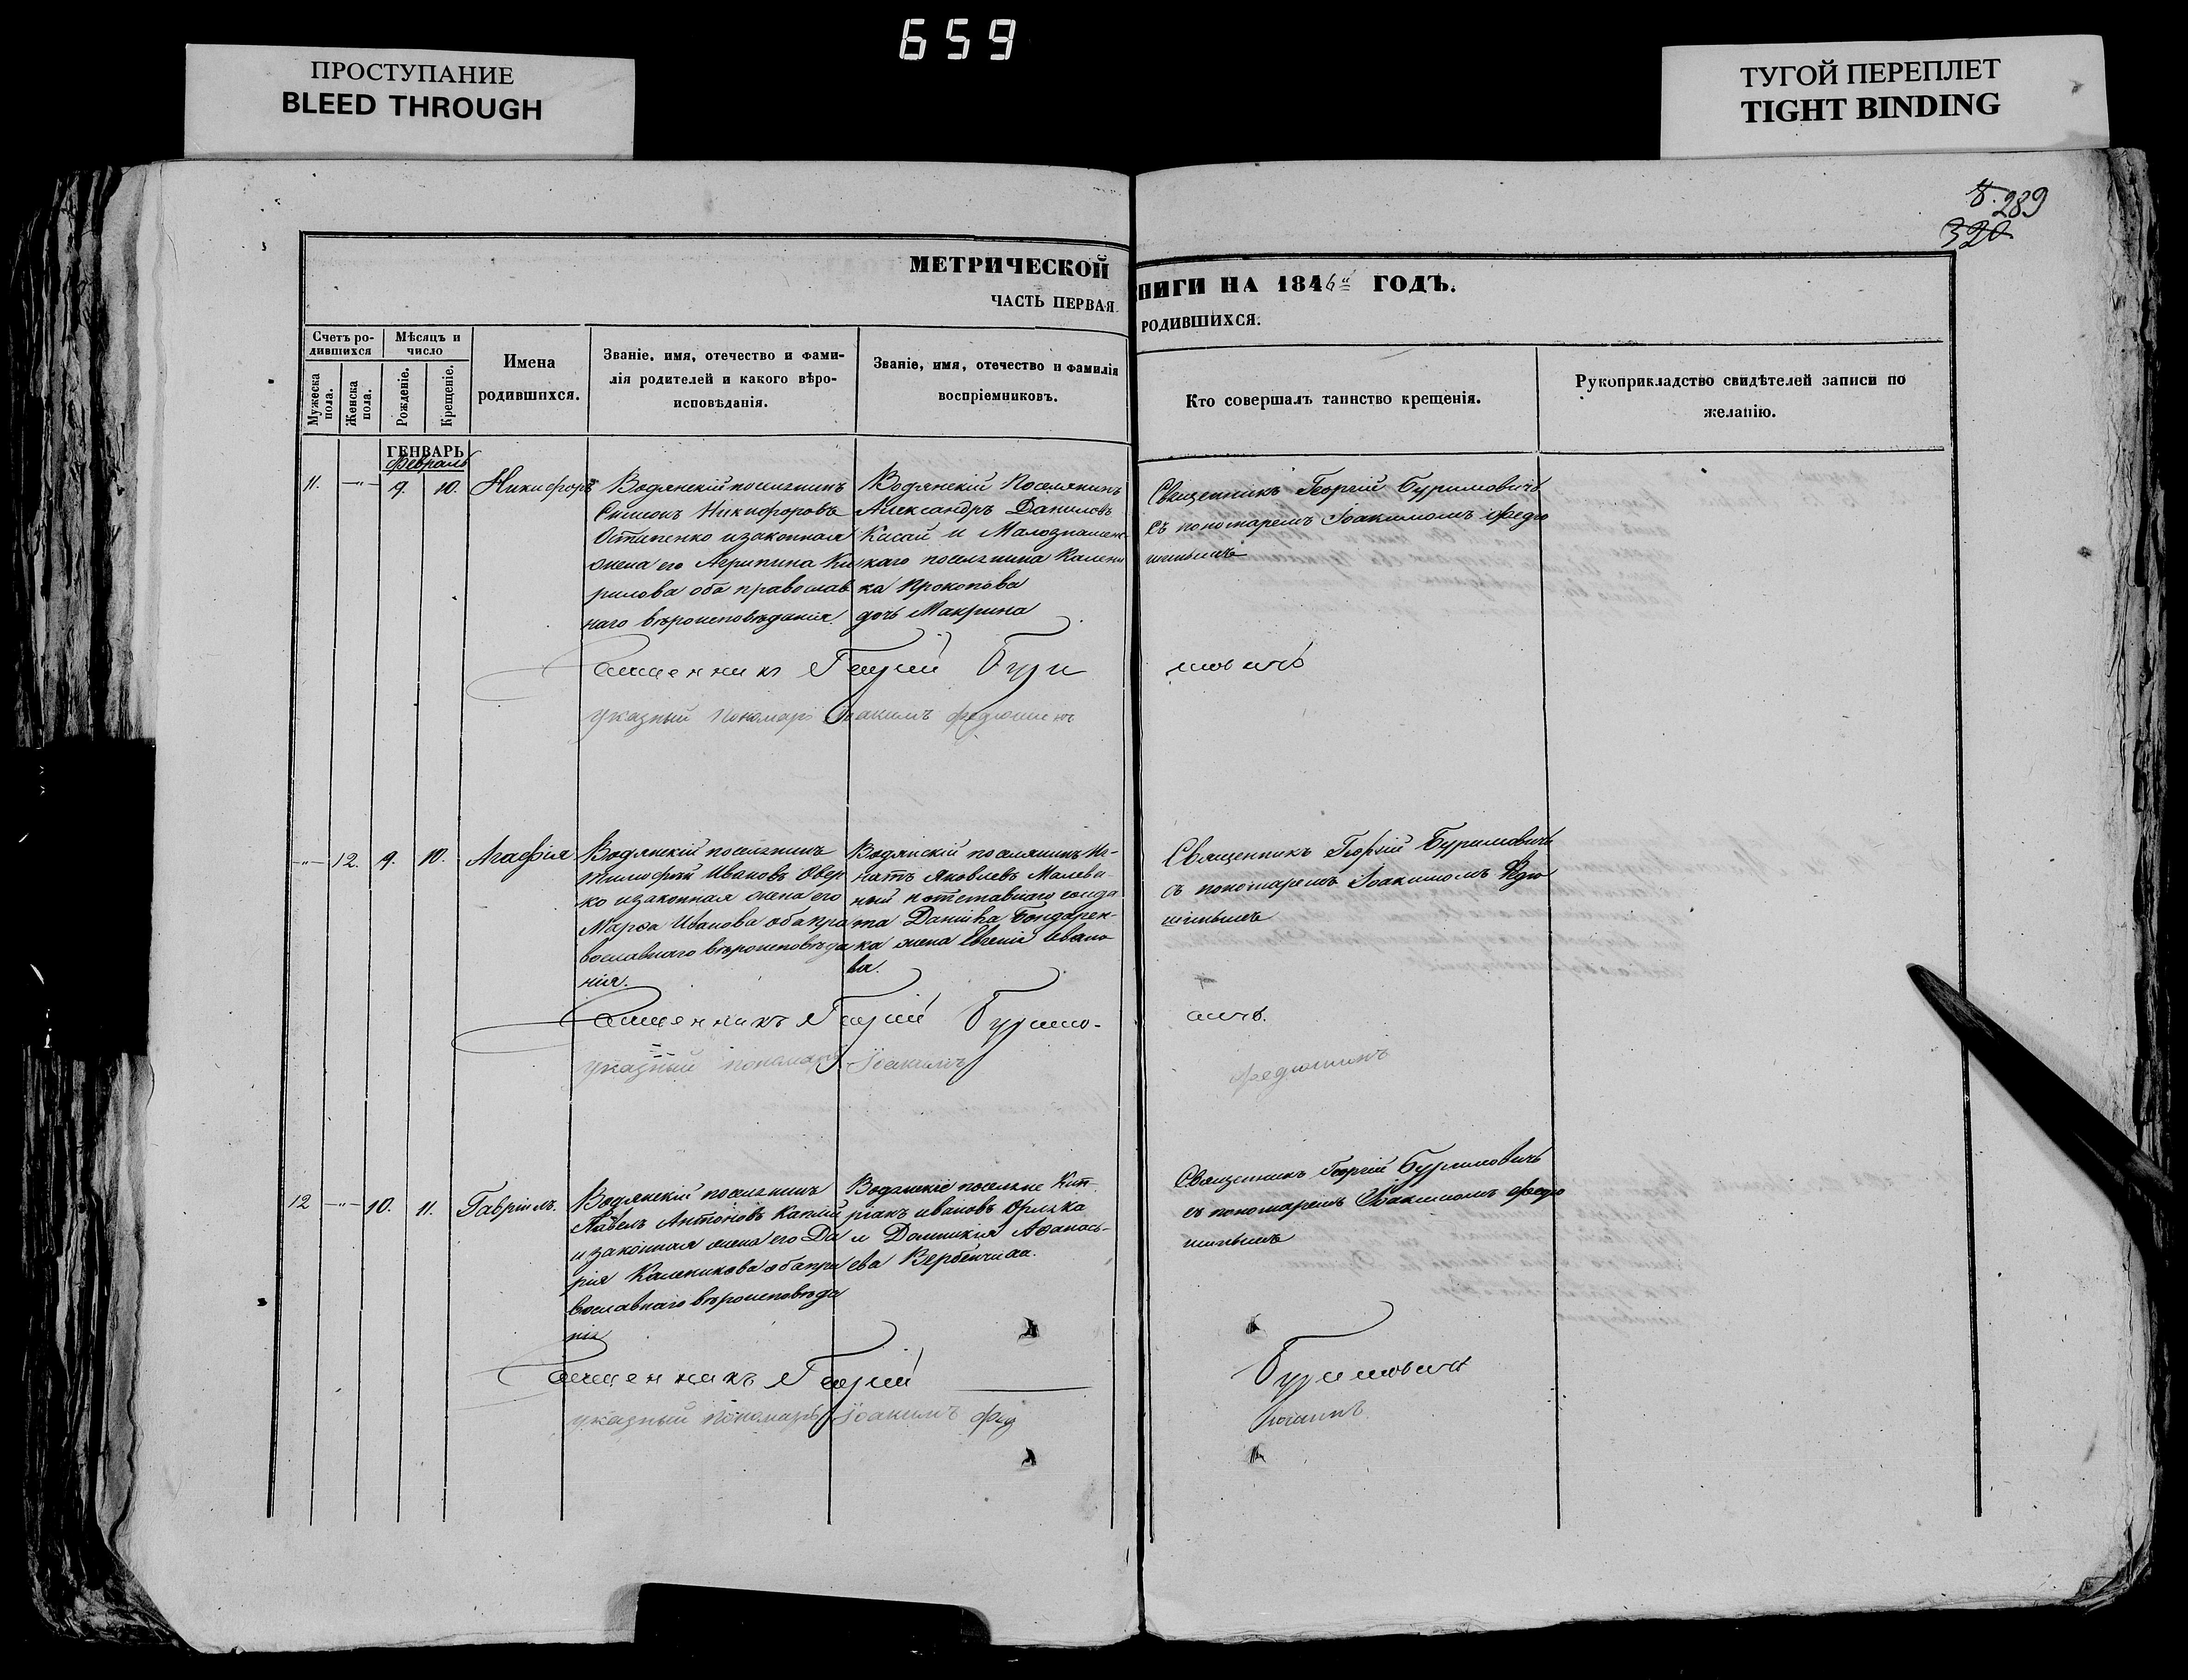 659
ПРОСТУПАНИЕ
BLEED THROUGH
ТУГОЙ ПЕРЕПЛЕТ
TIGHT BINDING
289
320
МЕТРИЧЕСКОЙ
НИГИ НА 1846 ГОДЪ.
ЧАСТЬ ПЕРВАЯ
РОДИВШИХСЯ.
Счетъ ро-
дившихся
Мѣсяцъ и
число
Мужеска
пола.
Женска
пола.
Рожденіе.
Крещеніе.
Имена
родившихся.
Званіе, имя, отечество и фами-
лія родителей и какого вѣро-
исповѣданія.
Званіе, имя, отечество и фамилія
воспріемниковъ.
Кто совершалъ таинство крещенія.
Рукоприкладство свидѣтелей записи по
желанію.
ГЕНВАРЬ
Февраль
11. —"— 9. 10. Никифоръ
Водянскій поселянинъ
Симеонъ Никифоровъ
Остапенко изаконная
жена его Агрипина Ки
рилова оба православ
наго вѣроисповѣданія
Водянскій Поселянинъ
Александръ Даниловъ
Касай и Малознаменс
каго поселянина Калени
ка Прокопова
дочь Макрина
Священникъ Георгій Буримовичъ
съ пономаремъ Іоакимомъ Федю
шинымъ
Священникъ Георгій Бури
мовичъ
указный пономарь Іоакимъ Федюшинъ
—"— 12. 9. 10. Агафія
Водянскій поселянинъ
Тимофей Ивановъ Овер
ко изаконная жена его
Марфа Иванова оба пра
вославнаго вѣроисповѣда
нія.
Водянскій поселянинъ Иг-
натъ Яковлевъ Малева-
ный и отставнаго солда
та Даніила Бондарен-
ка жена Евгенія Ивано
ва.
Священникъ Георгій Буримовичъ
съ пономаремъ Іоакимомъ Федю
шинымъ
Священникъ Георгій Буримо-
вичъ.
указный пономарь Іоакимъ
Федюшинъ
12 —"— 10. 11. Гавріилъ.
Водянскій поселянинъ
Павелъ Антоновъ
и законная жена его Да
рія Каленикова оба пра
вославнаго вѣроисповѣда
нія
Водянскіе поселяне Кип
ріанъ Ивановъ Орляка
и Домникія Афанась-
ева
Священникъ Георгій Буримовичъ
съ пономаремъ Іоакимомъ Федю
шинымъ
Священникъ Георгій
Буримовичъ
указный пономарь Іоакимъ Фед
юшинъ